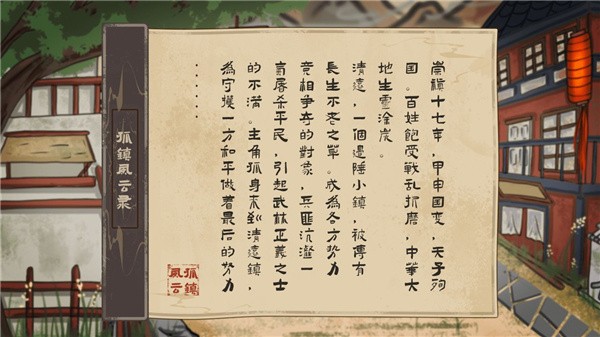 崇禎十七年，甲申国变，天子殉
国。百姓飽受戰乱折磨，中華大
地生靈涂炭。
清遠，一個邊陲小鎮，被傳有
長生不老之草。成為各方势力
竞相争夺的對象，兵匪沆瀣一
氣屠杀平民，引起武林正義之士
的不滿。主角孤身来到清遠鎮，
為守護一方和平做着最后的努力
......
孤鎮風云录
孤鎮
風云